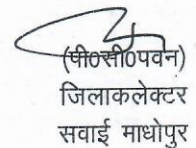 (पी०सी०पवन)
जिलाकलेक्टर
सवाई माधोपुर